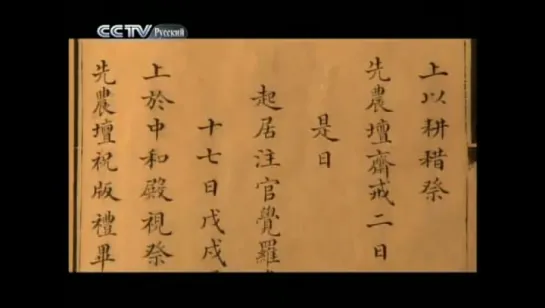 CCTV Русский
上以耕耤祭
先農壇齋戒二日
是日
起居注官覺羅
十七日戊戌
上於中和殿視祭
先農壇祝版禮畢